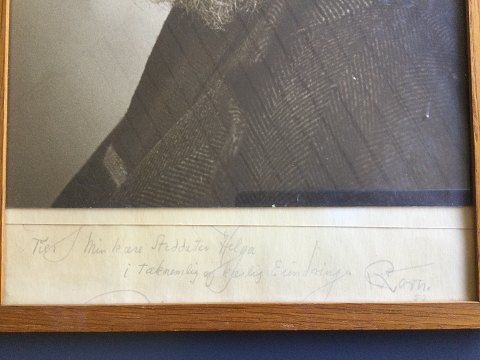 Til Min kære Steddatter Helga
i taknemlig og kærlig Erindring